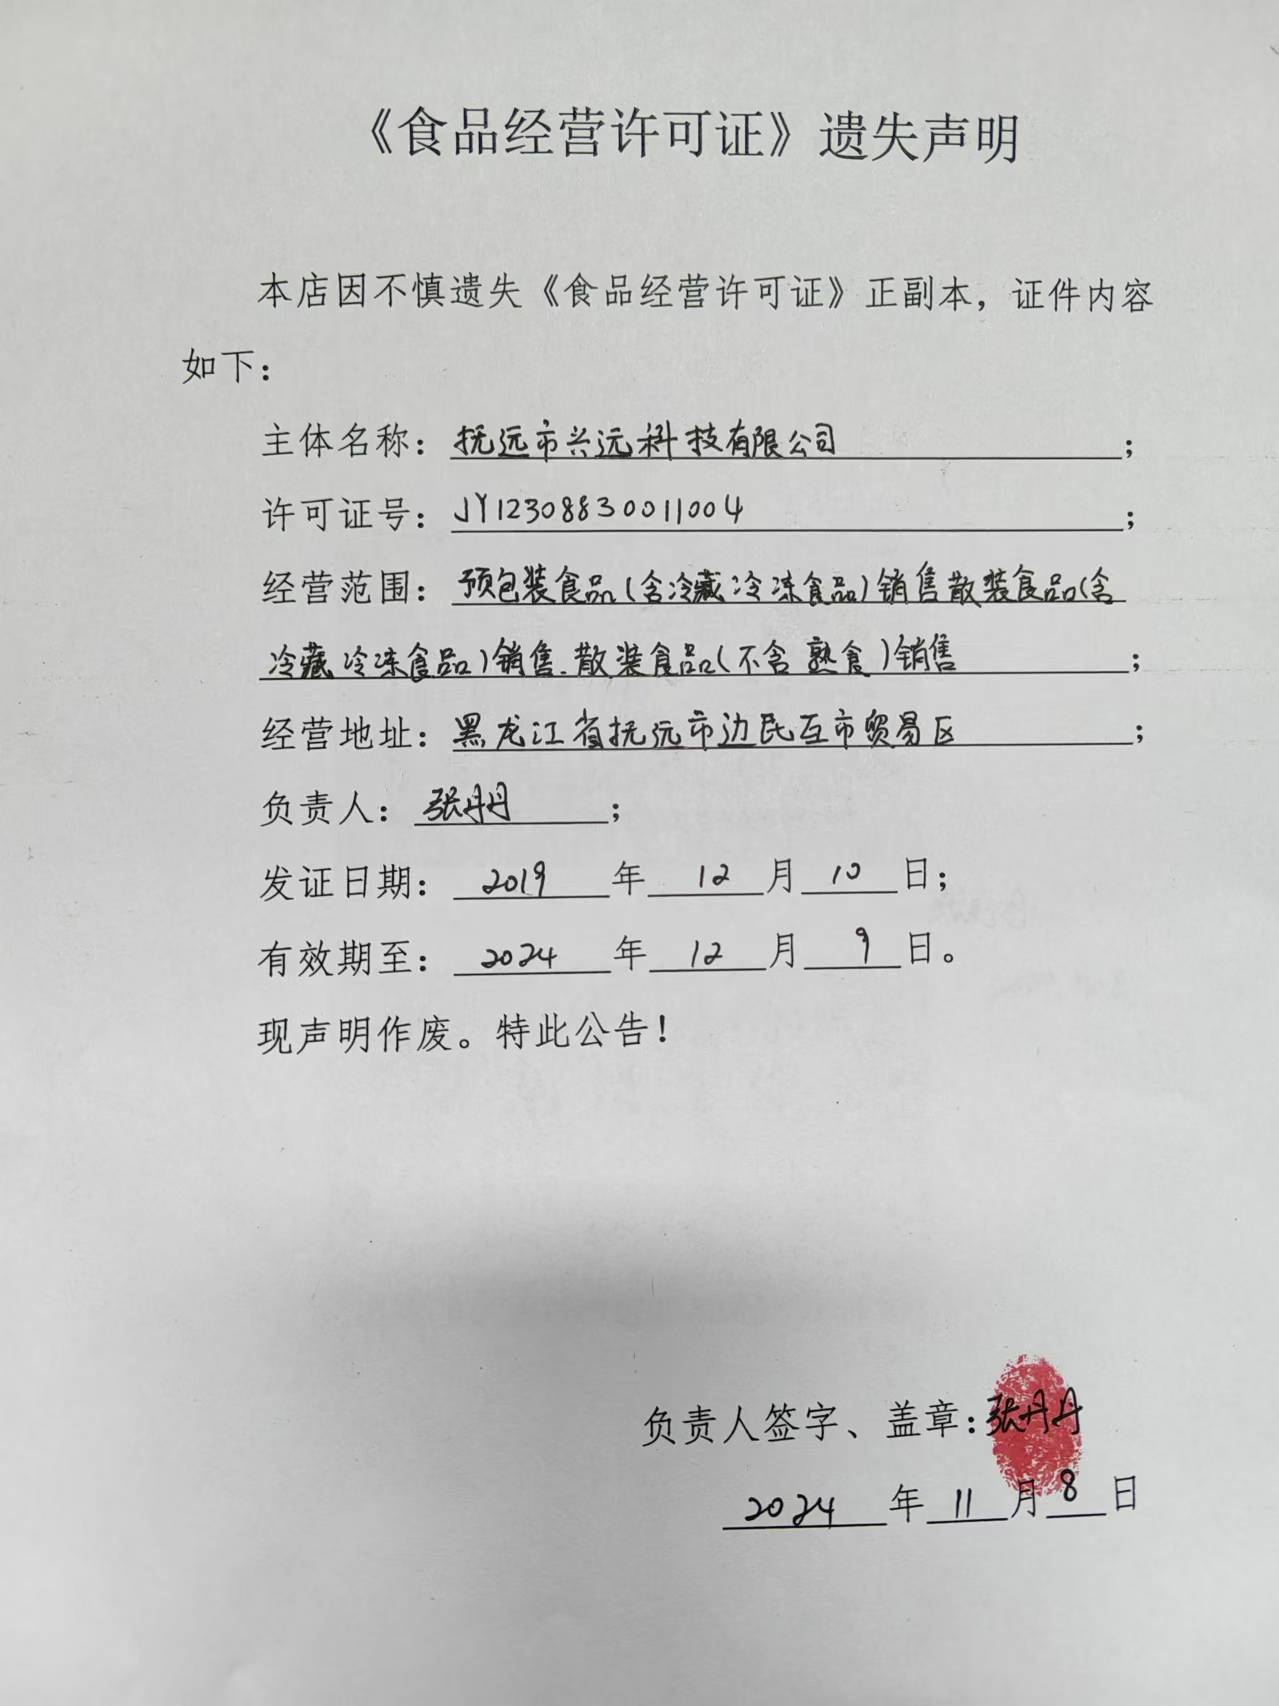 《食品经营许可证》遗失声明
本店因不慎遗失《食品经营许可证》正副本，证件内容
如下：
主体名称：抚远市兴远科技有限公司；
许可证号：JY12308830011004；
经营范围：预包装食品(含冷藏冷冻食品)销售散装食品(含
冷藏冷冻食品)销售.散装食品(不含熟食)销售；
经营地址：黑龙江省抚远市边民互市贸易区；
负责人：张丹丹；
发证日期：2019年12月10日；
有效期至：2024年12月9日。
现声明作废。特此公告！
负责人签字、盖章：张丹丹
2024年11月8日